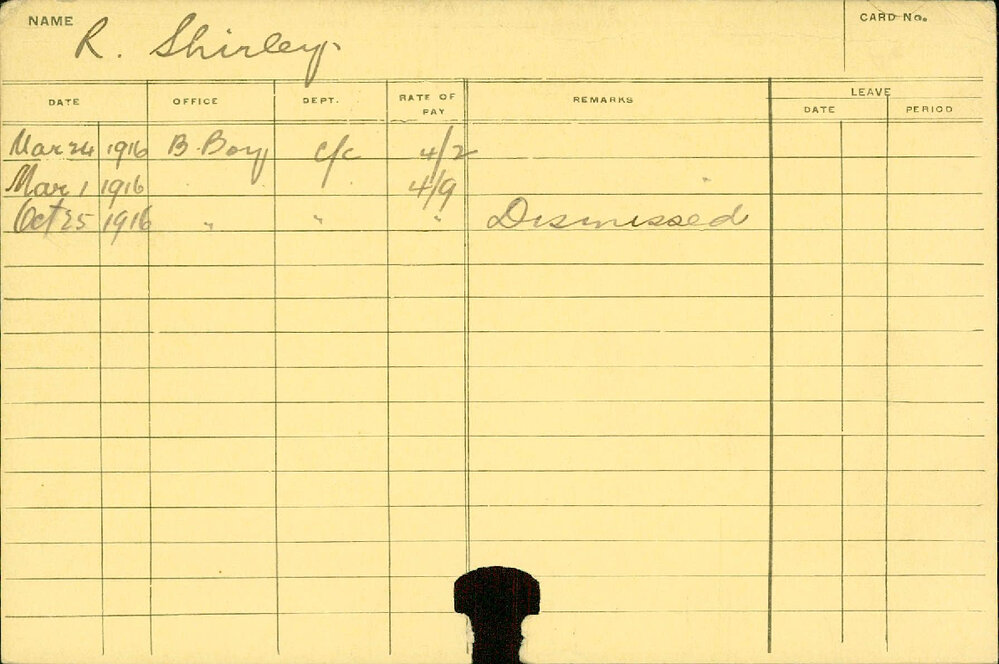 NAME R. Shirley. CARD No.
LEAVE
DATE OFFICE DEPT. RATE OF PAY REMARKS DATE PERIOD
Mar 24 1916 B. Boy c/c 4/2
Mar 1 1916 4/9
Oct 25 1916 " " " Dismissed